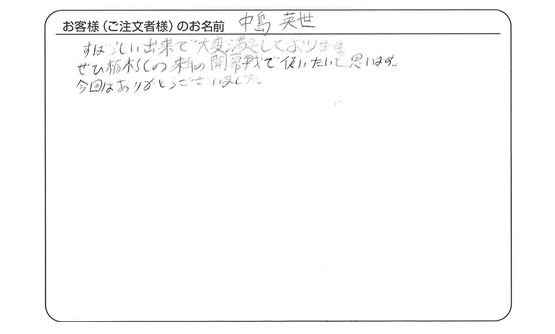 お客様(ご注文者様)のお名前 中島 英世
すばらしい出来で大変満足しております。
ぜひ栃木SCの来年の開幕戦で使いたいと思います。
今回はありがとうございました。